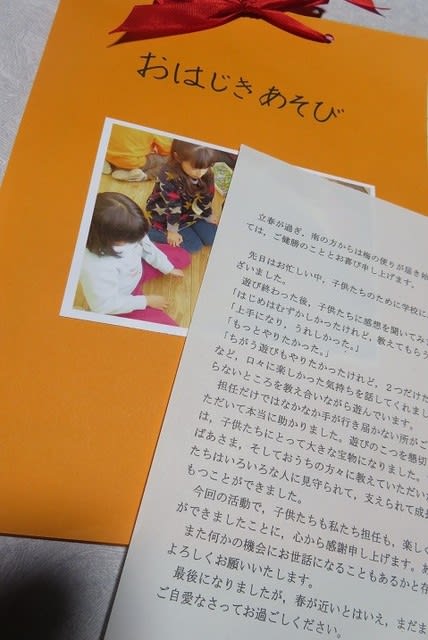 おはじきあそび
立春が過ぎ，南の方からは梅の便りが届き始
ては，ご健勝のこととお喜び申し上げます。
先日はお忙しい中，子供たちのために学校に
ざいました。
遊び終わった後，子供たちに感想を聞いてみ
「はじめはむずかしかったけれど，教えてもらう
「上手になり，うれしかった。」
「もっとやりたかった。」
「ちがう遊びもやりたかったけれど，２つだけだ
など，口々に楽しかった気持ちを話してくれまし
らないところを教え合いながら遊んでいます。
担任だけではなかなか手が行き届かない所がご
ただいて本当に助かりました。遊びのこつを懇切
は，子供たちにとって大きな宝物になりました。
ばあさま，そしておうちの方々に教えていただい
たちはいろいろな人に見守られて，支えられて成
もつことができました。
今回の活動で，子供たちも私たち担任も，楽し
ができましたことに，心から感謝申し上げます。
また何かの機会にお世話になることもあるかと存
よろしくお願いいたします。
最後になりましたが，春が近いとはいえ，まだま
ご自愛なさってお過ごしください。